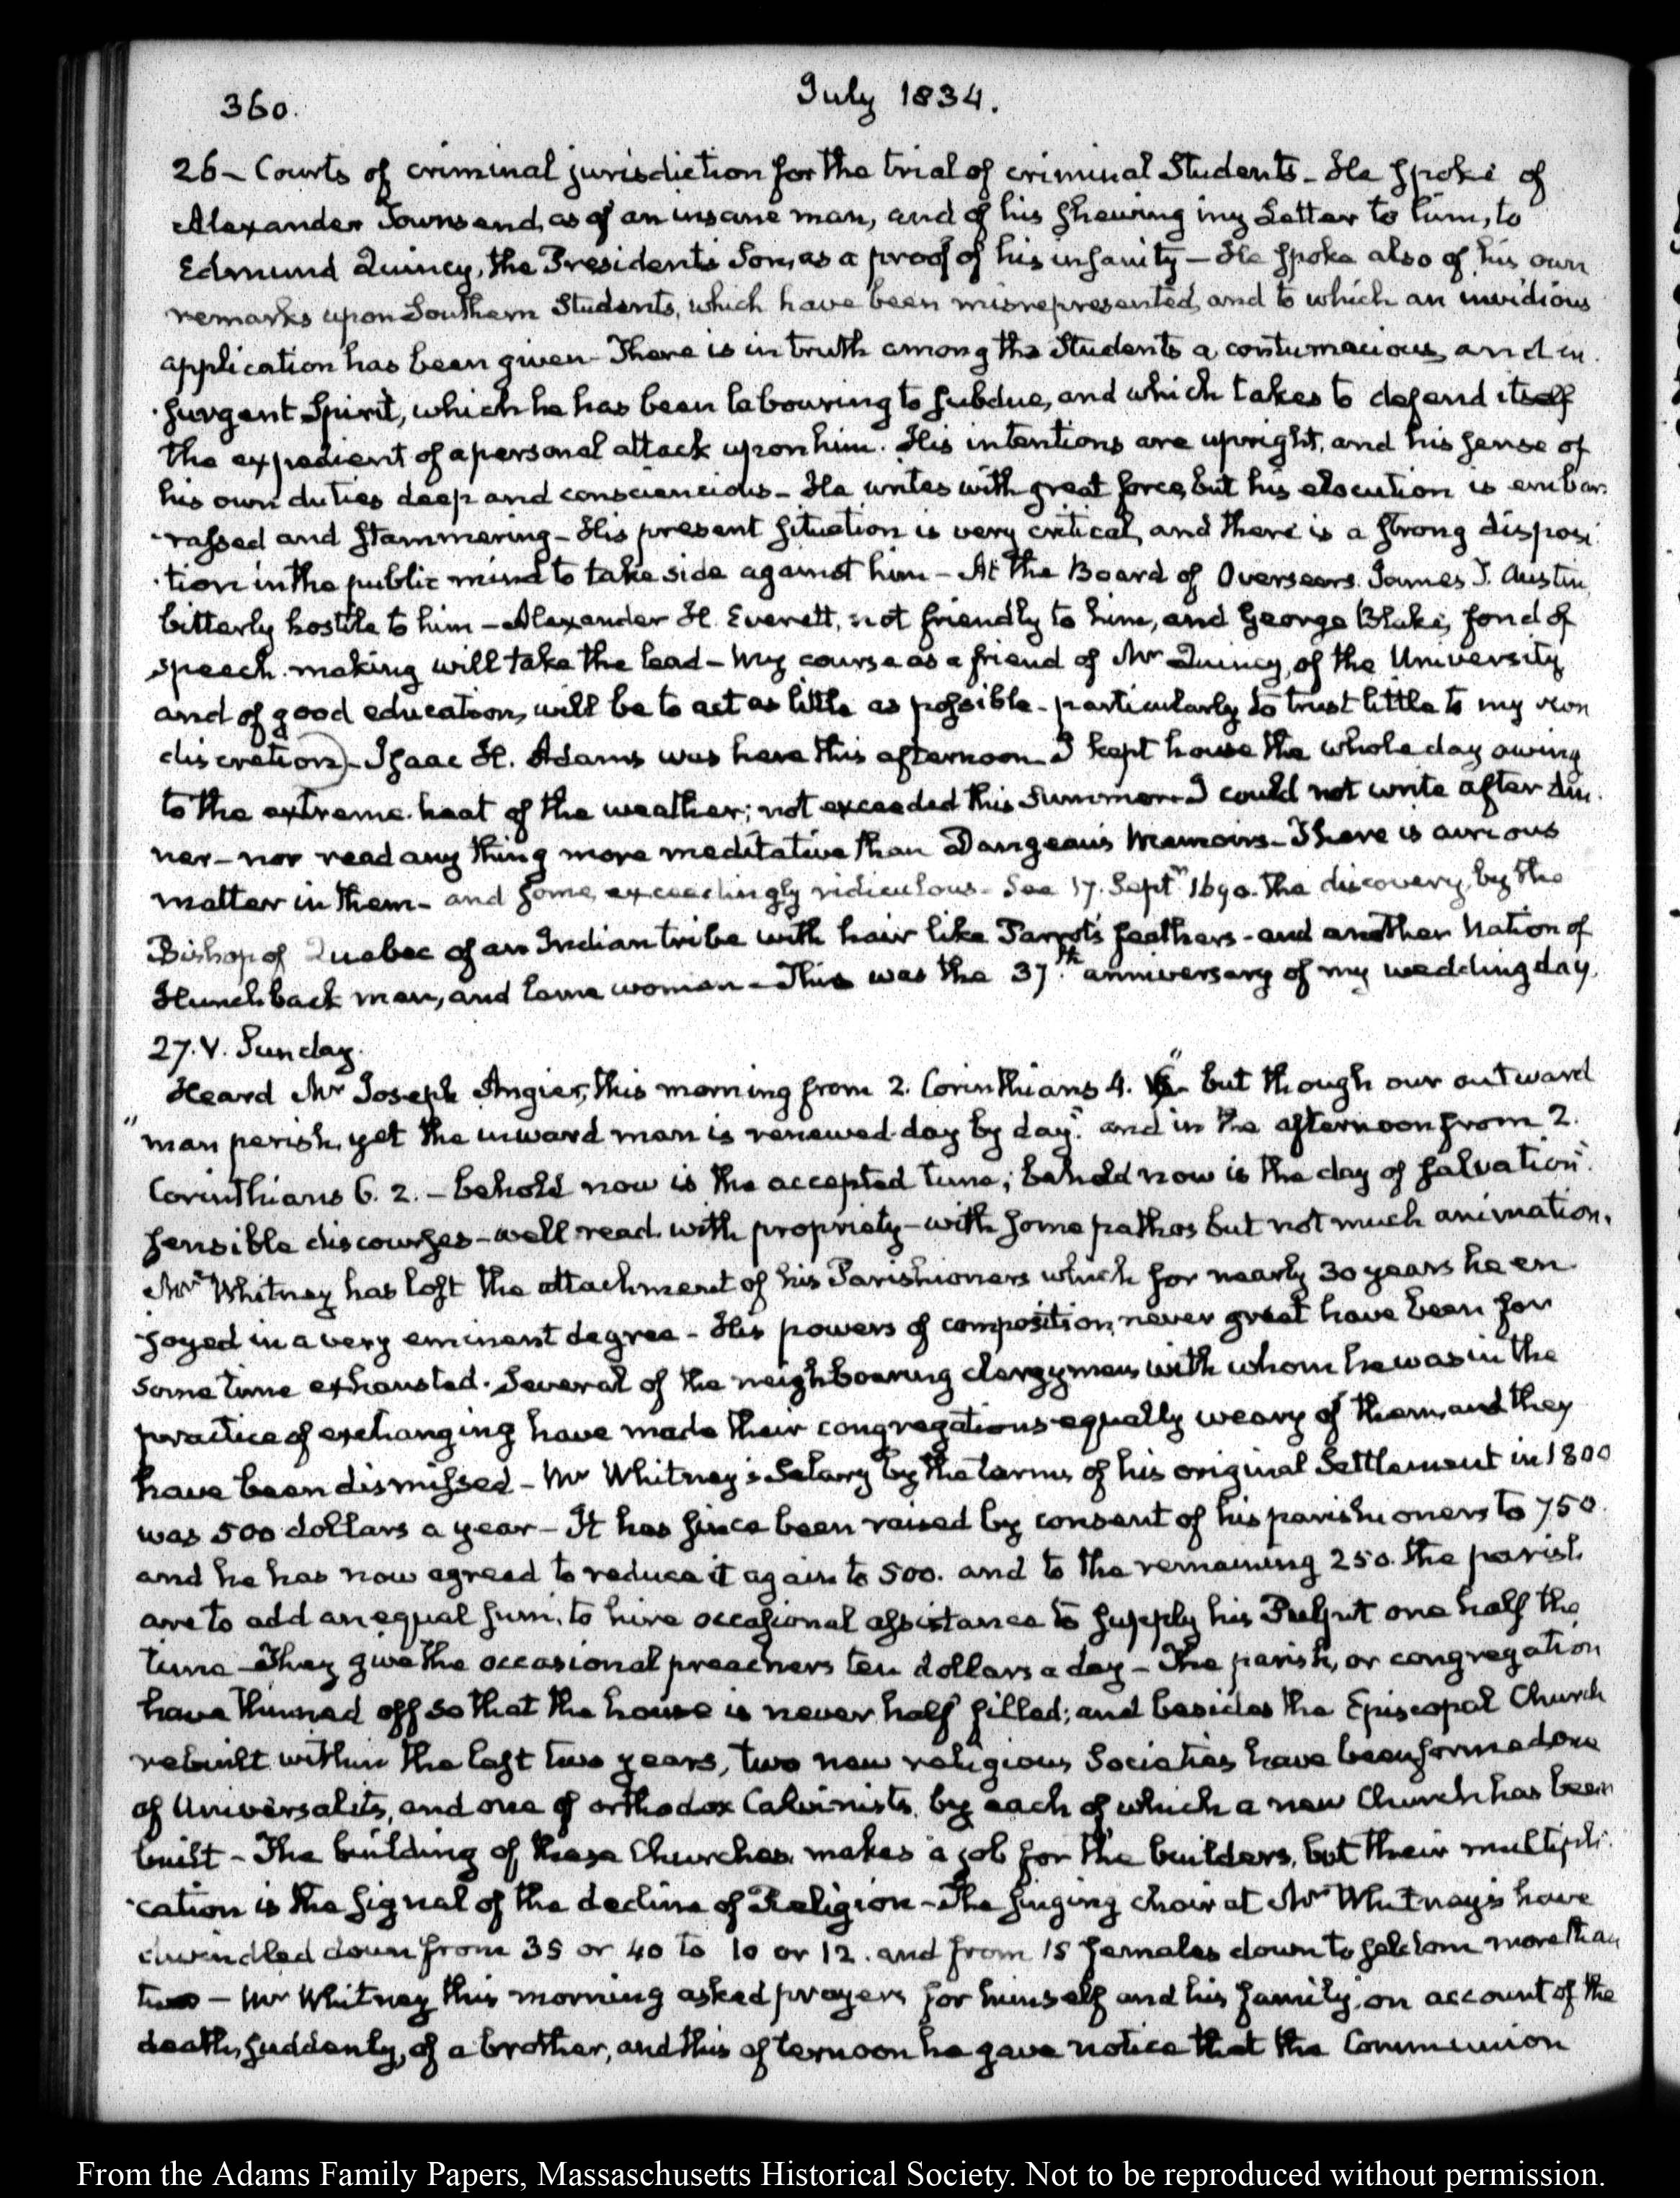 360.
July 1834.
26 - Courts of criminal jurisdiction for the trial of criminal Students - He spoke of
Alexander Townsend, as of an insane man, and of his shewing my Letter to him, to
Edmund Quincy, the President's Son, as a proof of his insanity - He spoke also of his own
remarks upon Southern Students, which have been misrepresented, and to which an invidious
application has been given - There is in truth among the Students a contumacious, and in-
-surgent Spirit, which he has been labouring to subdue, and which takes to defend itself
the expedient of a personal attack upon him. His intentions are upright, and his sense of
his own duties deep and consciencious - He writes with great force, but his elocution is embar-
-rassed and stammering - His present situation is very critical, and there is a strong disposi-
-tion in the public mind to take side against him - At the Board of Overseers. James T. Austin
bitterly hostile to him - Alexander H. Everett, not friendly to him, and George Blake, fond of
speech-making will take the lead - My course as a friend of Mr Quincy, of the University
and of good education, will be to act as little as possible - particularly to trust little to my own
discretion) - Isaac H. Adams was here this afternoon - I kept house the whole day owing
to the extreme heat of the weather; not exceeded this Summer - I could not write after din-
ner - nor read any thing more meditative than Dangeau's Memoirs - There is curious
matter in them - and some, exceedingly ridiculous - See 17. Septr 1690. The discovery, by the
Bishop of Quebec of an Indian tribe with hair like Parrots feathers - and another Nation of
Hunchback men, and lame women - This was the 37.th anniversary of my wedding day.
27. V. Sunday.
Heard Mr Joseph Angier, this morning from 2. Corinthians 4. "but though our outward
"man perish, yet the inward man is renewed day by day." and in the afternoon from 2.
Corinthians 6. 2. - behold now is the accepted time; behold now is the day of salvation".
sensible discourses - well read, with propriety - with some pathos but not much animation.
Mr Whitney has lost the attachment of his Parishioners which for nearly 30 years he en-
-joyed in a very eminent degree - His powers of composition, never great have been for
some time exhausted. Several of the neighbouring clergymen with whom he was in the
practice of exchanging have made their congregations equally weary of them, and they
have been dismissed - Mr Whitney's Salary by the terms of his original Settlement in 1800
was 500 dollars a year - It has since been raised by consent of his parishioners to 750
and he has now agreed to reduce it again to 500. and to the remaining 250. the parish
are to add an equal sum, to hire occasional assistance to supply his Pulpit one half the
time - They give the occasional preachers ten dollars a day - The parish, or congregation
have thinned off so that the house is never half filled; and besides the Episcopal Church
rebuilt within the last two years, two new religious Societies have been formed one
of Universalists, and one of orthodox Calvinists, by each of which a new Church has been
built - The building of these Churches, makes a job for the builders, but their multipli-
-cation is the signal of the decline of Religion - The singing choir at Mr Whitney's have
dwindled down from 35 or 40 to 10 or 12. and from 15 females down to seldom more than
two - Mr Whitney this morning asked prayers for himself and his family, on account of the
death, suddenly, of a brother, and this afternoon he gave notice that the Communion
From the Adams Family Papers, Massachusetts Historical Society. Not to be reproduced without permission.